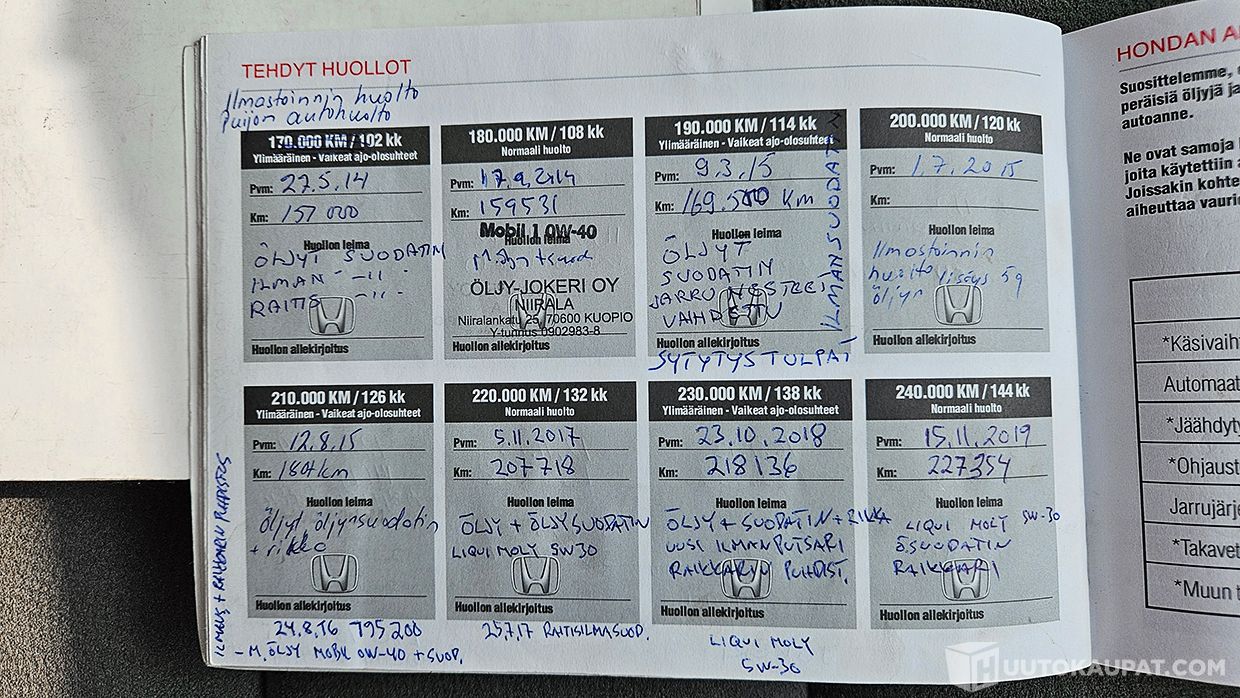 TEHDYT HUOLLOT
Ilmastoinnin huolto
Puijon autohuolto
170.000 KM / 102 kk
Ylimääräinen - Vaikeat ajo-olosuhteet
Pvm: 27.5.14
Km: 157 000
Huollon leima
ÖLJYT SUODATIN
ILMAN -11-
RAITIS -11-
Huollon allekirjoitus
180.000 KM / 108 kk
Normaali huolto
Pvm: 17.9.2014
Km: 159531
Mobil 1 0W-40
Huollon leima
ÖLJY-JOKERI OY
NIIRALA
Niiralankatu 25, 70600 KUOPIO
Y-tunnus 0902983-8
Huollon allekirjoitus
190.000 KM / 114 kk
Ylimääräinen - Vaikeat ajo-olosuhteet
Pvm: 9.3.15
Km: 169.500 Km
Huollon leima
ÖLJYT
SUODATIN
JARRUNESTEET
VAIHDETTU
Huollon allekirjoitus
SYTYTYSTULPAT
ILMANSUODATIN
200.000 KM / 120 kk
Normaali huolto
Pvm: 1.7.2015
Km:
Huollon leima
Ilmastoinnin
huolto
öljyn lisäys 5g
Huollon allekirjoitus
210.000 KM / 126 kk
Ylimääräinen - Vaikeat ajo-olosuhteet
Pvm: 12.8.15
Km: 180tkm
Huollon leima
Öljyt, öljynsuodatin
Huollon allekirjoitus
24.8.16 195200
- M.ÖLJY MOBIL 0W-40 + SUOD.
220.000 KM / 132 kk
Normaali huolto
Pvm: 5.11.2017
Km: 207718
Huollon leima
ÖLJY + ÖLJYSUODATIN
LIQUI MOLY 5W30
Huollon allekirjoitus
25.7.17 RAITISILMASUOD.
230.000 KM / 138 kk
Ylimääräinen - Vaikeat ajo-olosuhteet
Pvm: 23.10.2018
Km: 218136
Huollon leima
ÖLJY + SUODATIN +
UUSI ILMANPUTSARI
PUHDIST.
Huollon allekirjoitus
LIQUI MOLY
5W-30
240.000 KM / 144 kk
Normaali huolto
Pvm: 15.11.2019
Km: 227354
Huollon leima
LIQUI MOLY 5W-30
ÖSUODATIN
Huollon allekirjoitus
HONDAN A
Suosittelemme,
peräisiä öljyjä ja
autoanne.
Ne ovat samoja
joita käytettiin
Joissakin kohte
aiheuttaa vaurio
*Käsivaiht
Automaat
*Jäähdyty
*Ohjaust
Jarrujärje
*Takavet
*Muun t
HUUTOKAUPAT.COM